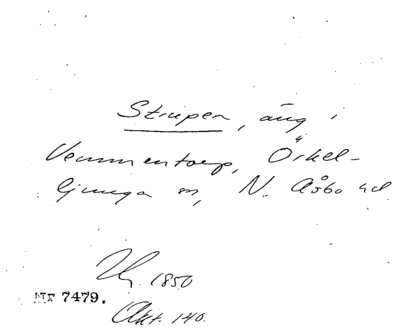 Stripen, äng i
Vemmentorp, Örkel-
ljunga sn, N. Åsbo hd
1850
Nr 7479.
Akt. 140.